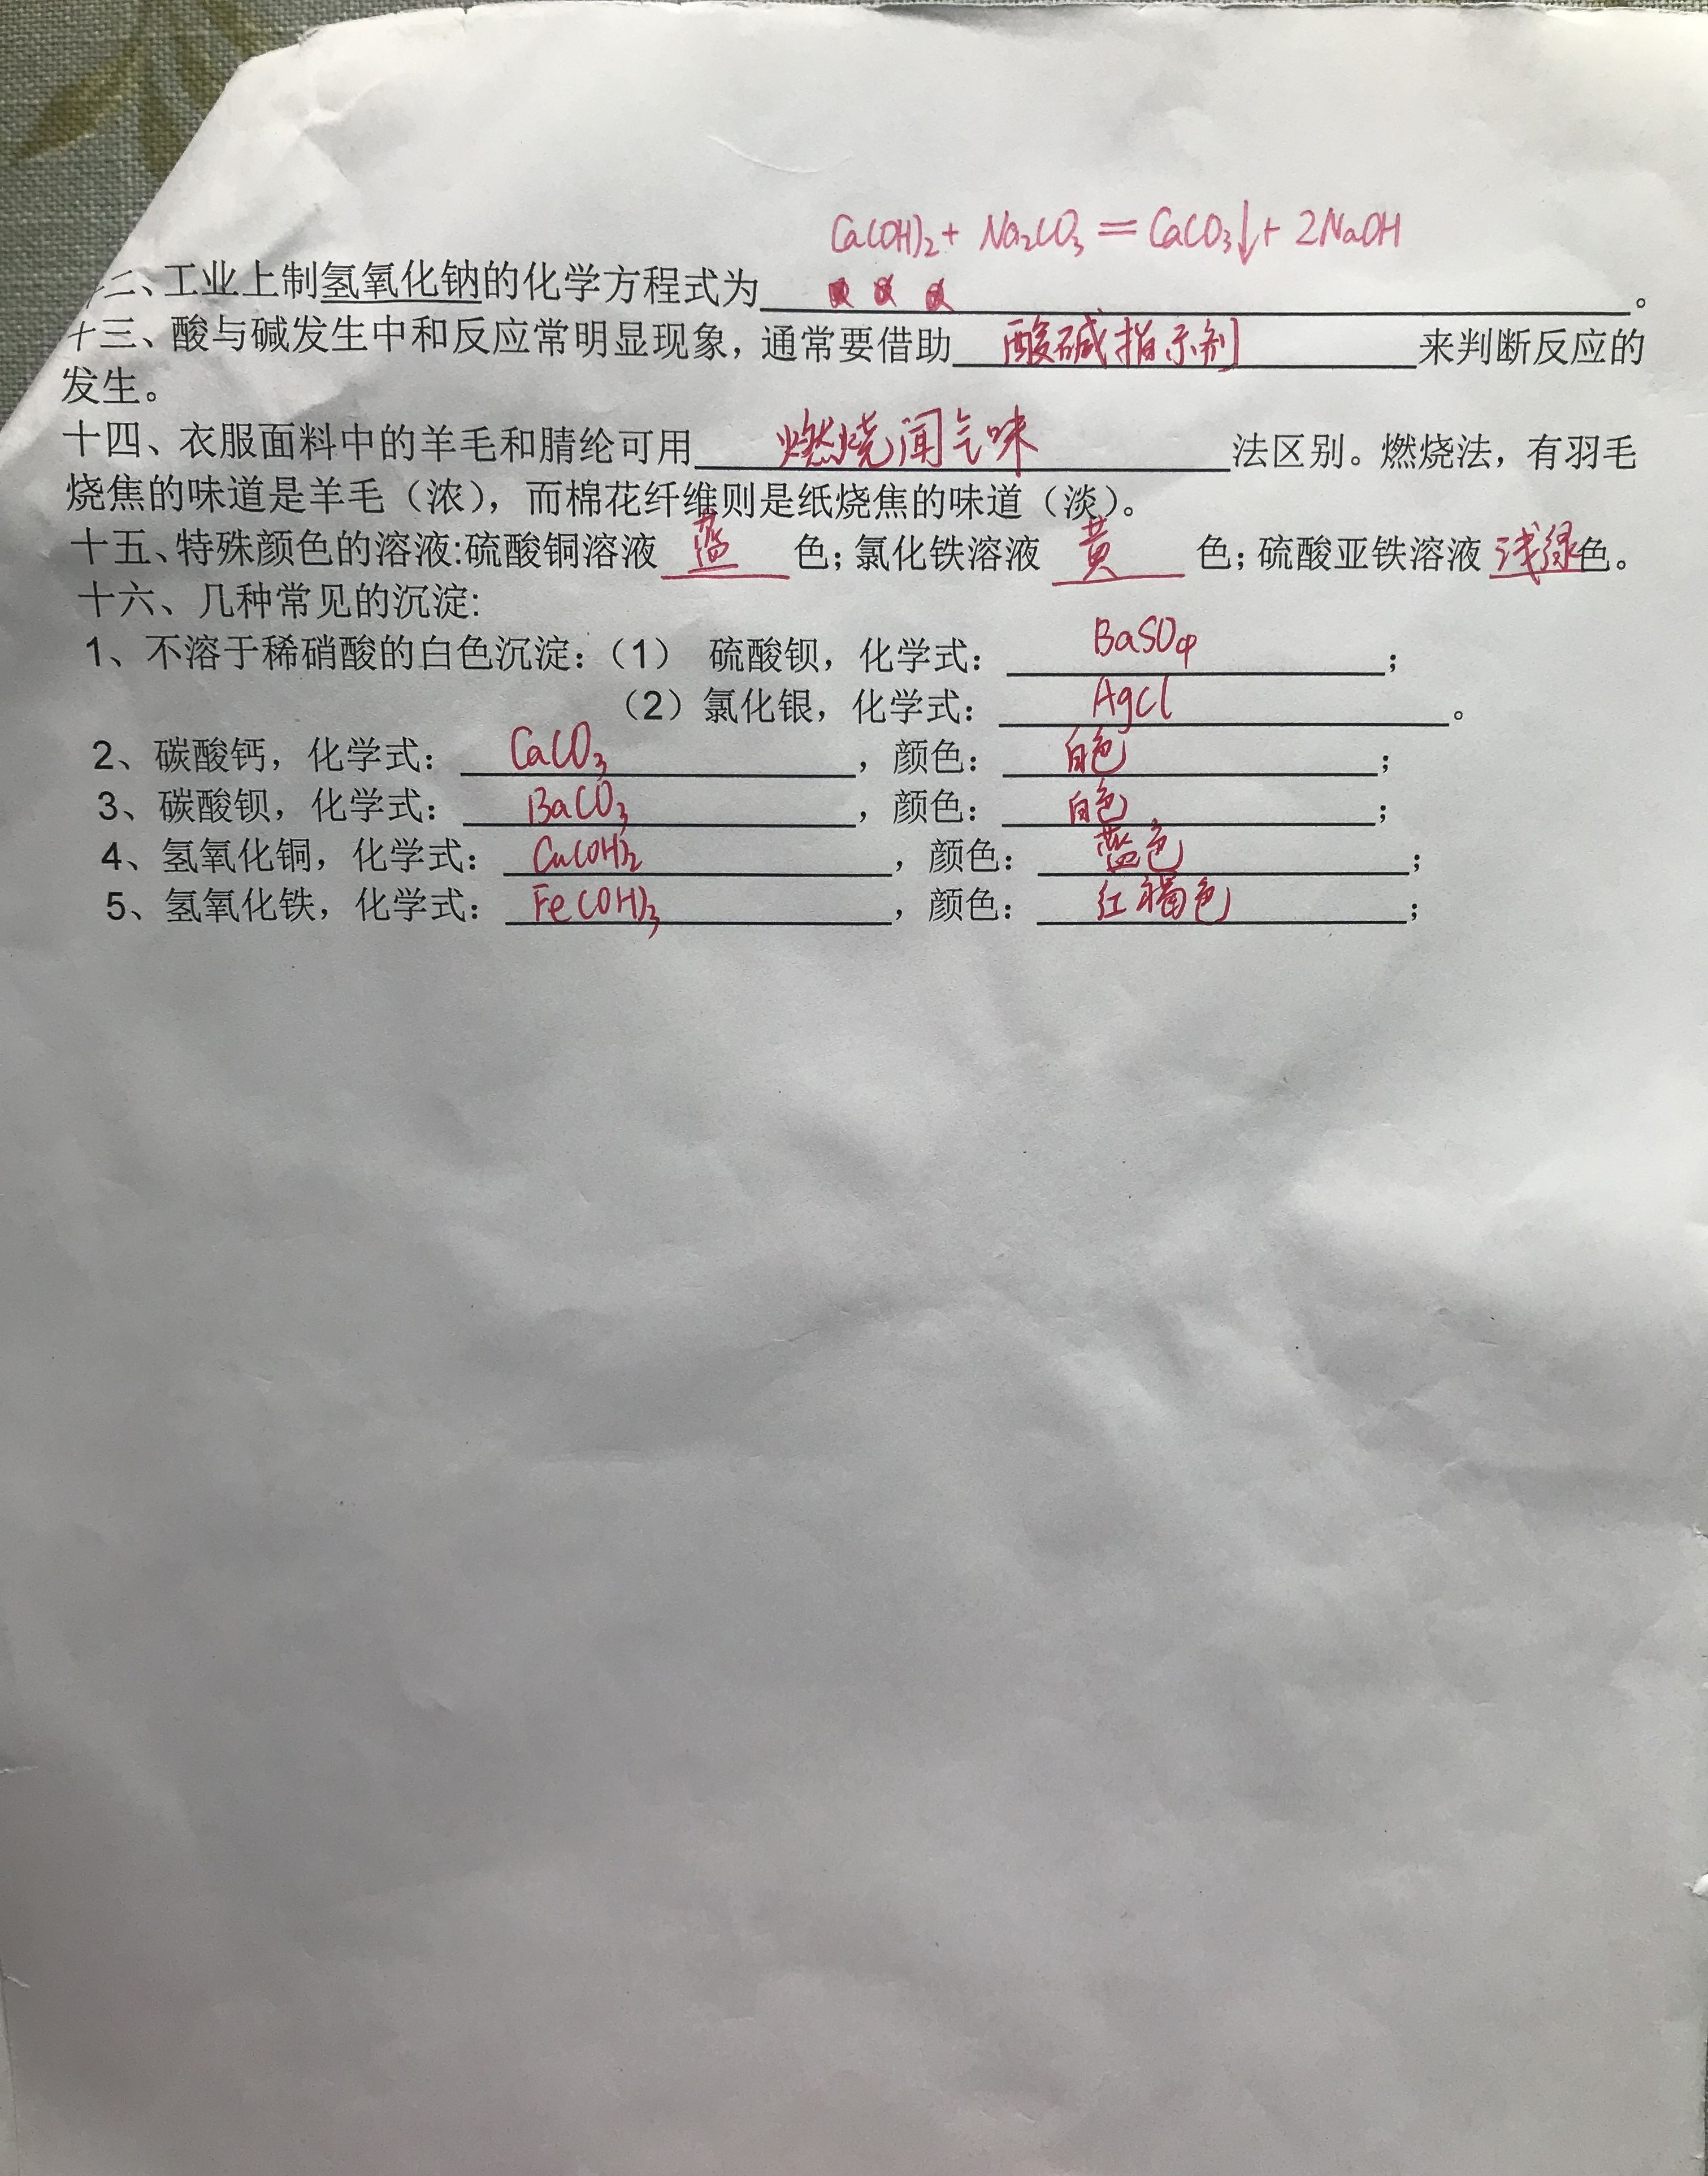 Ca(OH)₂ + Na₂CO₃ = CaCO₃↓ + 2NaOH
二、工业上制氢氧化钠的化学方程式为。
十三、酸与碱发生中和反应常明显现象，通常要借助 酸碱指示剂 来判断反应的
发生。
十四、衣服面料中的羊毛和腈纶可用 燃烧闻气味 法区别。燃烧法，有羽毛
烧焦的味道是羊毛（浓），而棉花纤维则是纸烧焦的味道（淡）。
十五、特殊颜色的溶液:硫酸铜溶液 蓝 色；氯化铁溶液 黄 色；硫酸亚铁溶液 浅绿色。
十六、几种常见的沉淀:
1、不溶于稀硝酸的白色沉淀：（1） 硫酸钡，化学式： BaSO₄ ；
（2）氯化银，化学式： AgCl 。
2、碳酸钙，化学式： CaCO₃ ，颜色： 白色 ；
3、碳酸钡，化学式： BaCO₃ ，颜色： 白色 ；
4、氢氧化铜，化学式： Cu(OH)₂ ，颜色： 蓝色 ；
5、氢氧化铁，化学式： Fe(OH)₃ ，颜色： 红褐色 ；